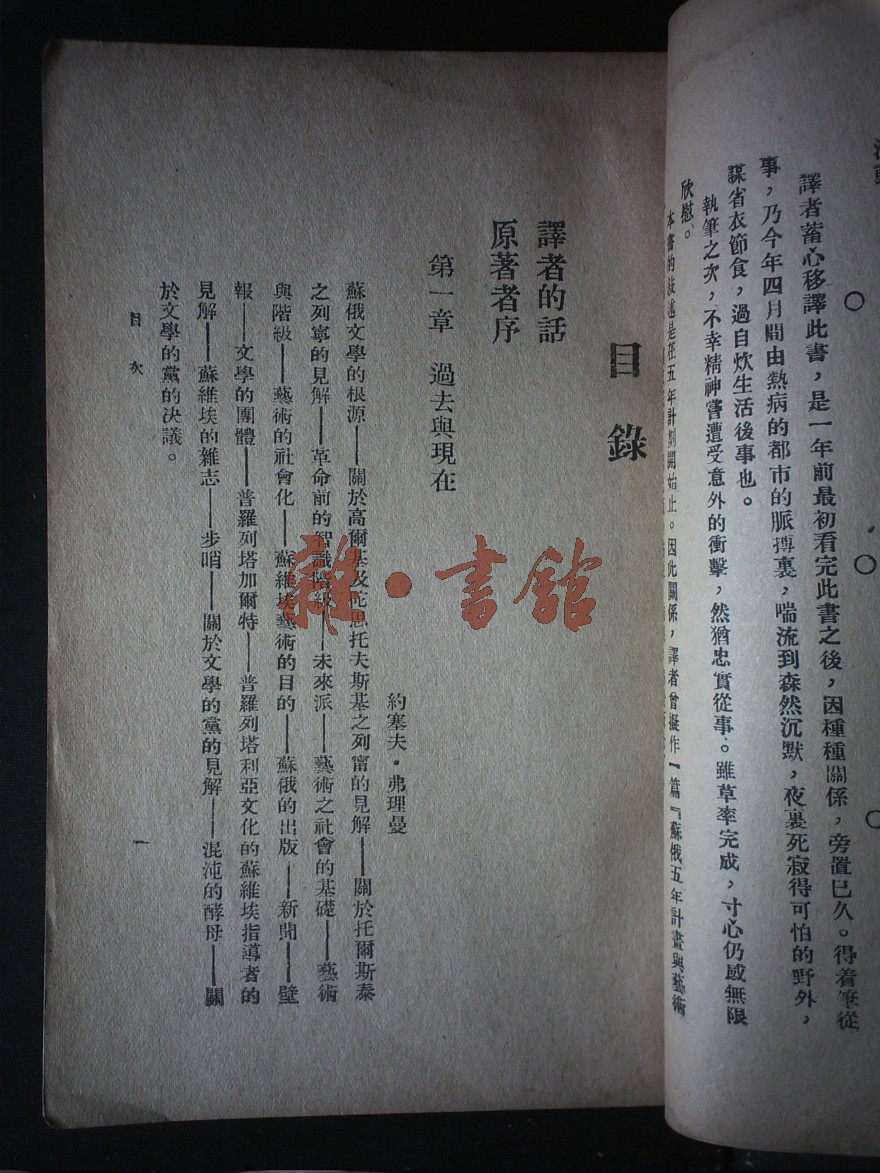 譯者蓄心移譯此書，是一年前最初看完此書之後，因種種關係，旁置已久。得着筆從
事，乃今年四月間由熱病的都市的脈搏裏，喘流到森然沉默，夜裏死寂得可怕的野外，
謀省衣節食，過自炊生活後事也。
執筆之次，不幸精神嘗遭受意外的衝擊，然猶忠實從事。雖草率完成，寸心仍感無限
欣慰。
本書的敍述是在五年計劃開始止。因此關係，譯者曾擬作『篇『蘇俄五年計畫與藝術
目錄
譯者的話
原著者序
第一章 過去與現在
約塞夫・弗理曼
蘇俄文學的根源——關於高爾基及陀思托夫斯基之列甯的見解——關於托爾斯泰
之列寧的見解——革命前的智識階級——未來派——藝術之社會的基礎——藝術
與階級——藝術的社會化——蘇維埃藝術的目的——蘇俄的出版——新聞——壁
報——文學的團體——普羅列塔加爾特——普羅列塔利亞文化的蘇維埃指導者的
見解——蘇維埃的雜志——步哨——關於文學的黨的見解——混沌的酵母——關
於文學的黨的決議。
目次
一
雜・書館